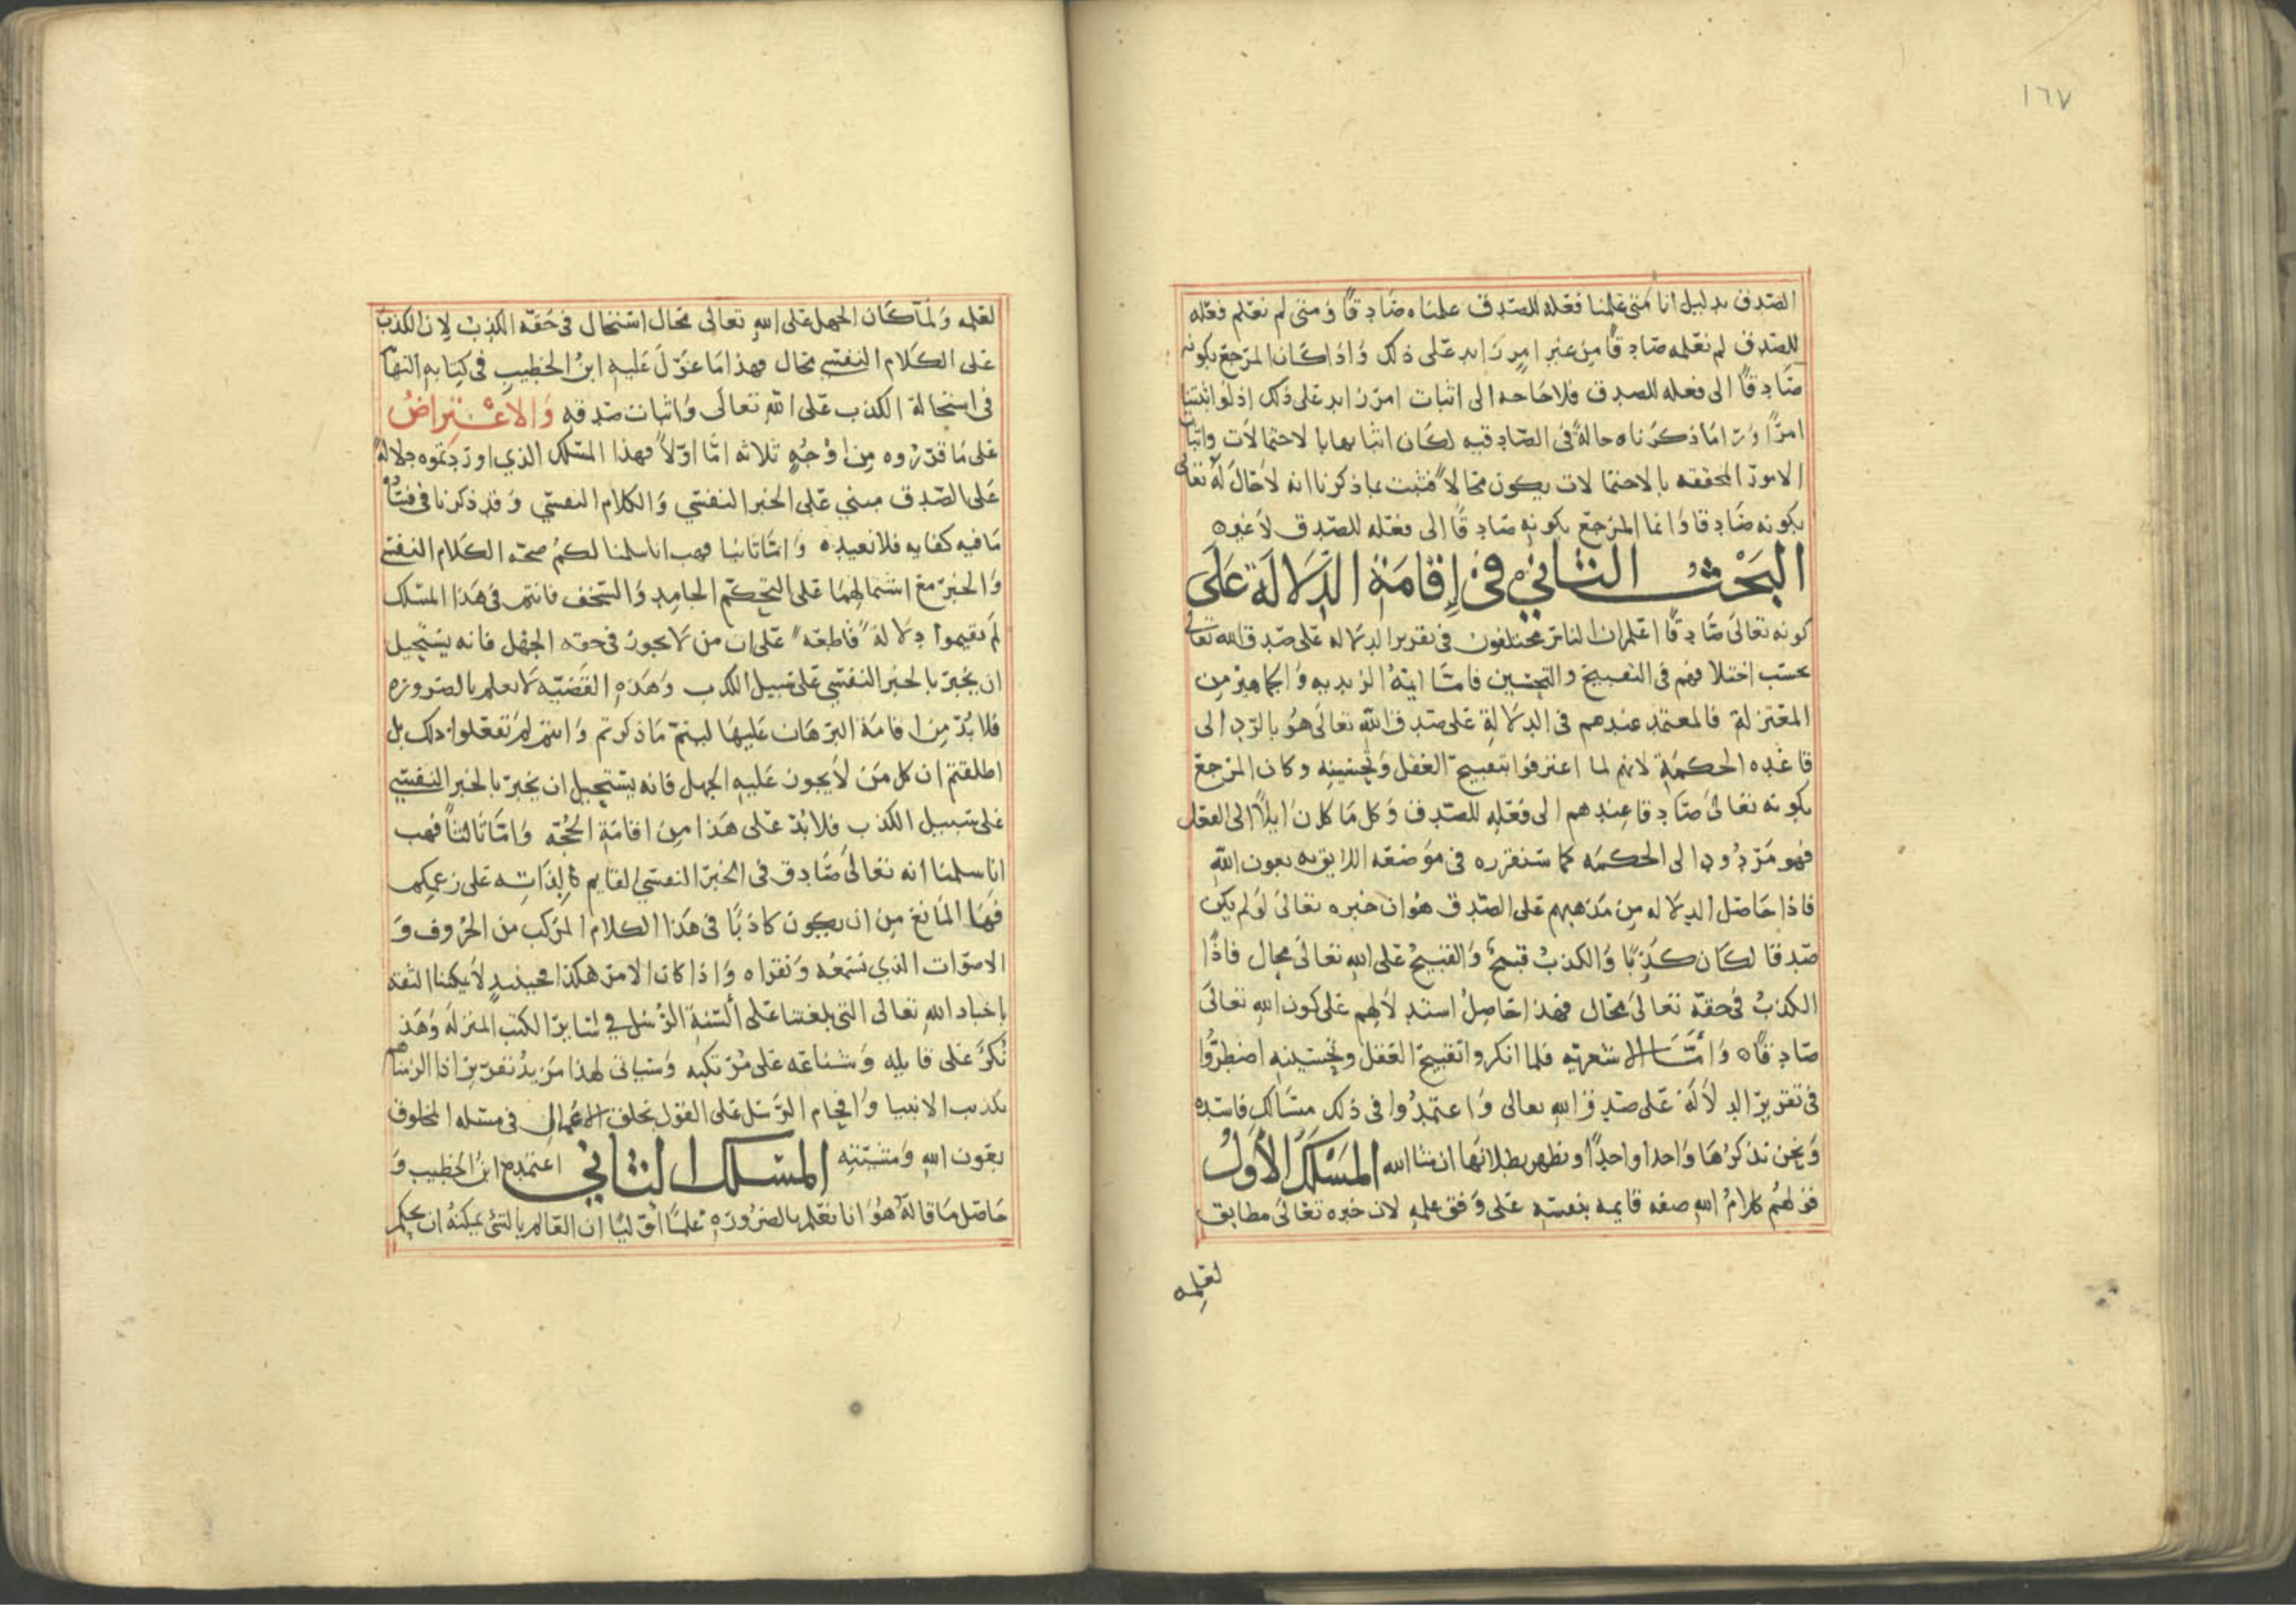 ١٦٧
الصدق بدليل انا متى علمنا فعله للصدق علمناه صادقًا ومتى لم نعلم فعله
للصدق لم نعلمه صادقًا من غير امر زايد على ذلك واذا كان المرجع بكونه
صادقًا الى فعله للصدق فلا حاجه الى اثبات امر زايد على ذلك اذ لو اثبتنا
امرًا ورا ما ذكرناه حالةً في الصادقيه لكان اثباتها بالاحتمالات واثبات
الامور المحققه بالاحتمالات يكون محالاً فثبت بما ذكرنا انه لا حال له تعالى
بكونه صادقا وانما المرجع بكونه صادقًا الى فعله للصدق لا غيره
البَحْثُ الثاني في إقامَة الدّلالَة عَلَى
كونه تعالى صَادقًا اعلم ان الناس مختلفون في تقرير الدلاله على صدق الله تعالى
بحسب اختلافهم في التقبيح والتحسين فامّا ايمة الزيديه والجماهير من
المعتزلة فالمعتمد عندهم في الدلالة على صدق الله تعالى هو بالرد الى
قاعده الحكمة لانهم لما اعترفوا بتقبيح العقل وتحسينه وكان المرجع
بكونه تعالى صادقا عندهم الى فعله للصدق وكل ما كان ايلاً الى الفعل
فهو مردود الى الحكمه كما سنقرره في موضعه اللايق به بعون الله
فاذا حاصل الدلاله من مذهبهم على الصدق هو ان خبره تعالى لو لم يكن
صدقا لكان كذبًا والكذبُ قبيحٌ والقبيحُ على الله تعالى محال فاذًا
الكذبُ في حقه تعالى محال فهذا حاصلُ استدلالهم على كون الله تعالى
صادقًا ٥ وَامَّا الاشعريه فلما انكروا تقبيح العقل وتحسينه اضطرُّوا
في تقرير الدلالة على صدق الله تعالى واعتمدُوا في ذلك مسَالك فاسده
ونحن نذكرُها واحدا واحدًا ونظهر بطلانها ان شا الله المَسْلَكُ الأوّلُ
قولهُم كلامُ الله صفه قايمه بنفسه على وفق علمه لان خبره تعالى مطابق
لعلمه
لعلمه ولمّا كان الجهل على الله تعالى محال استحال في حقه الكذبُ لان الكذب
على الكلام النفسي محال فهذا ما عوّل عليه ابنُ الخطيب في كتابه النهايه
في استحالة الكذب على الله تعالى واثبات صدقه وَالاعْتراضُ
على ما قرّروه من اوجُهٍ ثلاثه امّا اوّلاً فهذا المسلك الذي اوردتموه دلالةً
على الصّدق مبني على الخبر النفسي والكلام النفسي وقد ذكرنا في فساده
ما فيه كفايه فلا نعيده وَامّا ثانيا فهب انا سلمنا لكم صحّه الكلام النفسي
والخبر مع اشتمالهما على التحكّم الجامد والسّخف فانتم في هذا المسلك
لم تقيموا دلالةً قاطعه على ان من لا يجوز في حقه الجهل فانه يستحيل
ان يخبرَ بالخبر النفسي على سبيل الكذب وهذه القضيّه لا تعلم بالضروره
فلا بُدّ من اقامة البرهان عليها ليتمّ ما ذكرتم وانتم لم تفعلوا ذلك بل
اطلقتم ان كل من لا يجوز عليه الجهل فانه يستحيل ان يخبر بالخبر النفسي
على سبيل الكذب فلا بُدّ على هذا من اقامَةِ الحُجّه وَامّا ثالثاً فهب
انا سلمنا انه تعالى صادق في الخبر النفسي القايم بالذات على زعمكم
فما المانع من ان يكون كاذبًا في هذا الكلام المركب من الحُروف وَ
الاصوات الذي نسمعُه ونقراه واذا كان الامر هكذا فحينيدٍ لا يمكننا الثقه
باخبار الله تعالى التي بلغتنا على ألسنة الرُسُل في ساير الكتب المنزله وهذا
نُكرٌ على قايله وشناعه على مُرتكبه وسياتي لهذا مزيدُ تقرير اذا الزمناهم
بكذب الانبيا وافحام الرُسُل على القول بخلق الاعمال في مسئله المخلوق
بعون الله ومشيّته المَسْلك الثاني اعتمده ابنُ الخطيب وَ
حاصل ما قالهُ هُوَ انا نعلم بالضرورة علمًا اوّليًا ان العالم بالشي يمكنهُ ان يحكم